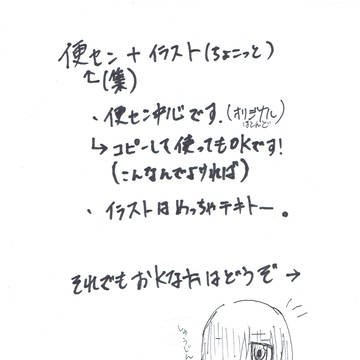 便セン + イラスト(ちょこっと)
↑(集)
・便セン中心です.(オリジナル ほとんど)
↳コピーして使ってもOKです!
(こんなんでよければ)
・イラストはめっちゃテキトー。
それでもOKな方はどうぞ→